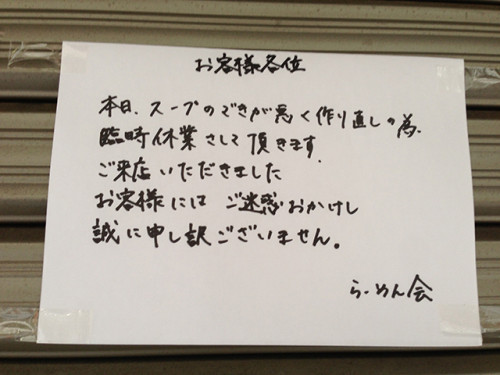 お客様各位
本日、スープのできが悪く作り直しの為、
臨時休業さして頂きます。
ご来店いただきました
お客様にはご迷惑おかけし
誠に申し訳ございません。
らーめん会